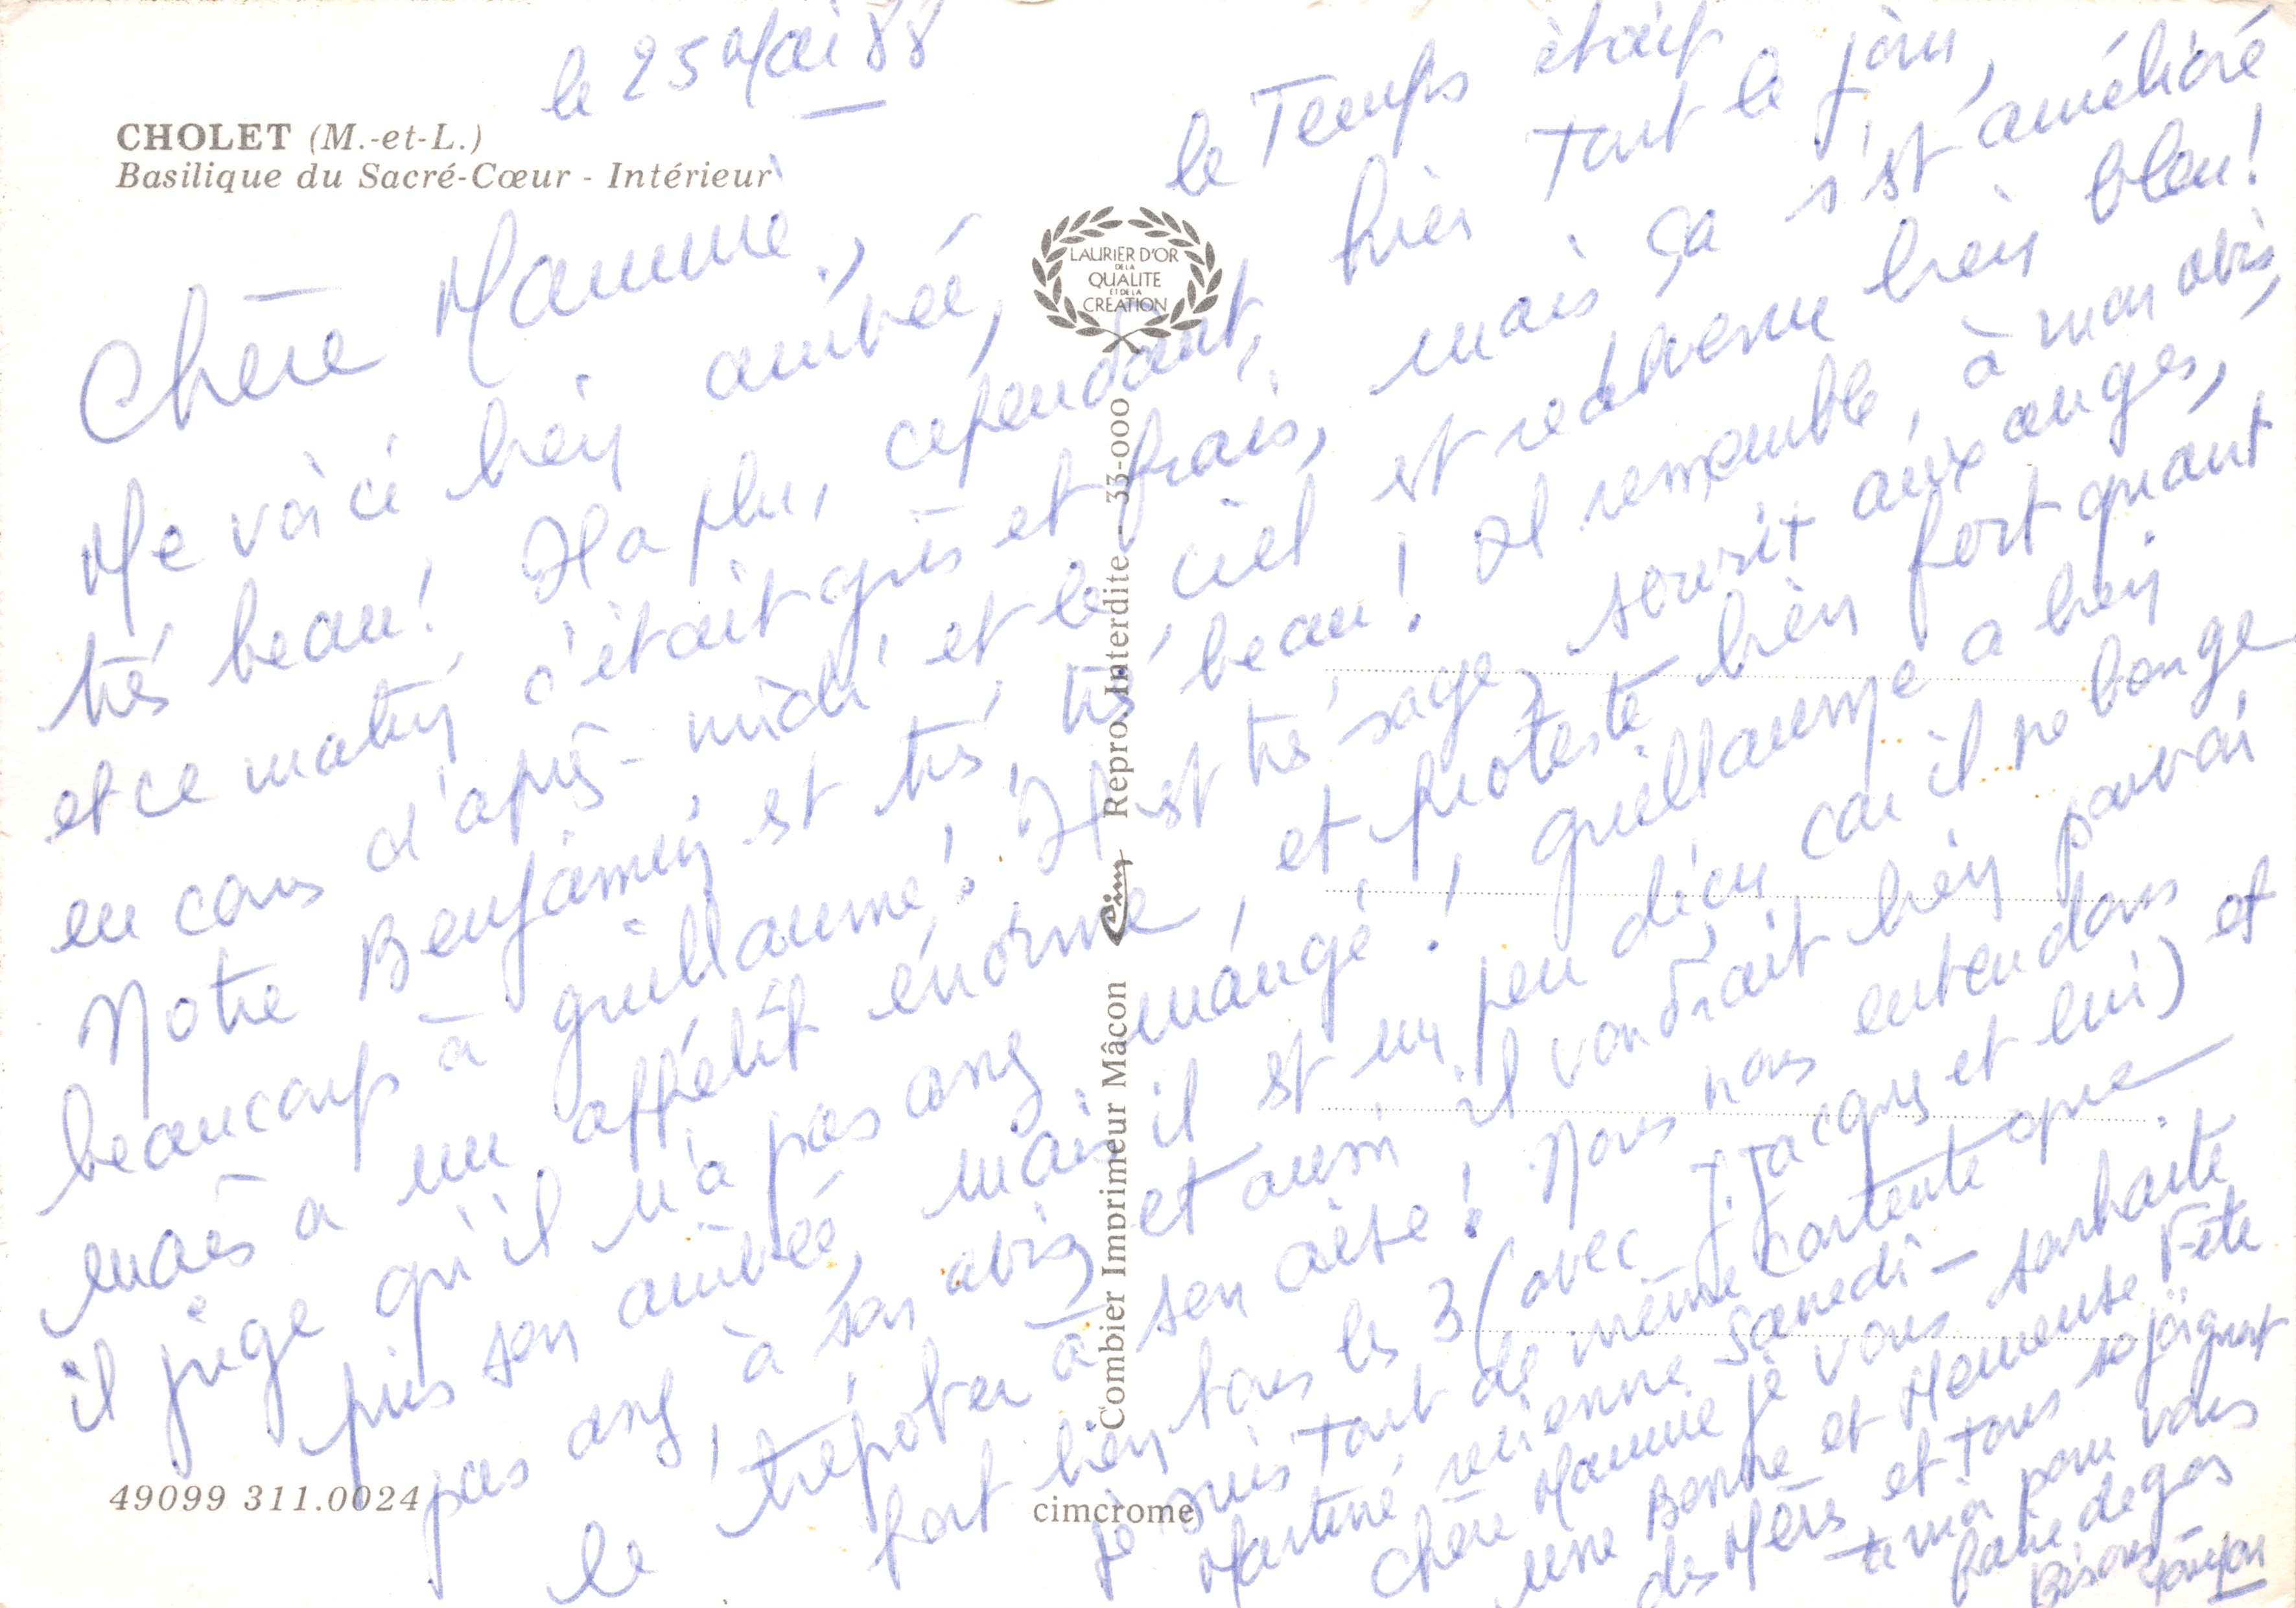 le 25 Mai 88
CHOLET (M.-et-L.)
Basilique du Sacré-Cœur - Intérieur
Chère Mamie,
Me voici bien arrivée, le Temps était
très beau! Il a plu, cependant, hier Tout le jour,
et ce matin c'était gris et frais, mais ça s'est amélioré
en cours d'après-midi et le ciel est redevenu bien bleu!
Notre Benjamin est très, très beau! Il ressemble, à mon avis,
beaucoup à Guillaume! Il est très sage, sourit aux anges,
mais a un appétit énorme, et proteste bien fort quant
il juge qu'il n'a pas assez mangé! Guillaume a bien
pris son arrivée, mais il est un peu déçu car il ne bouge
pas assez, à son avis, et aussi il voudrait bien pouvoir
le tripoter à son aise! Nous nous entendons
fort bien tous les 3 (avec J. Jacques et lui) et
je suis tout de même contente que
Martine revienne Samedi -
Chère Mamie je vous souhaite
une Bonne et Heureuse Fête
des Mères et Tous se joignent
à moi pour vous
faire de gros
Bisous
LAURIER D'OR
DE LA
QUALITE
ET DE LA
CREATION
Combier Imprimeur Mâcon Cim Repro. Interdite - 33-000
49099 311.0024
cimcrome